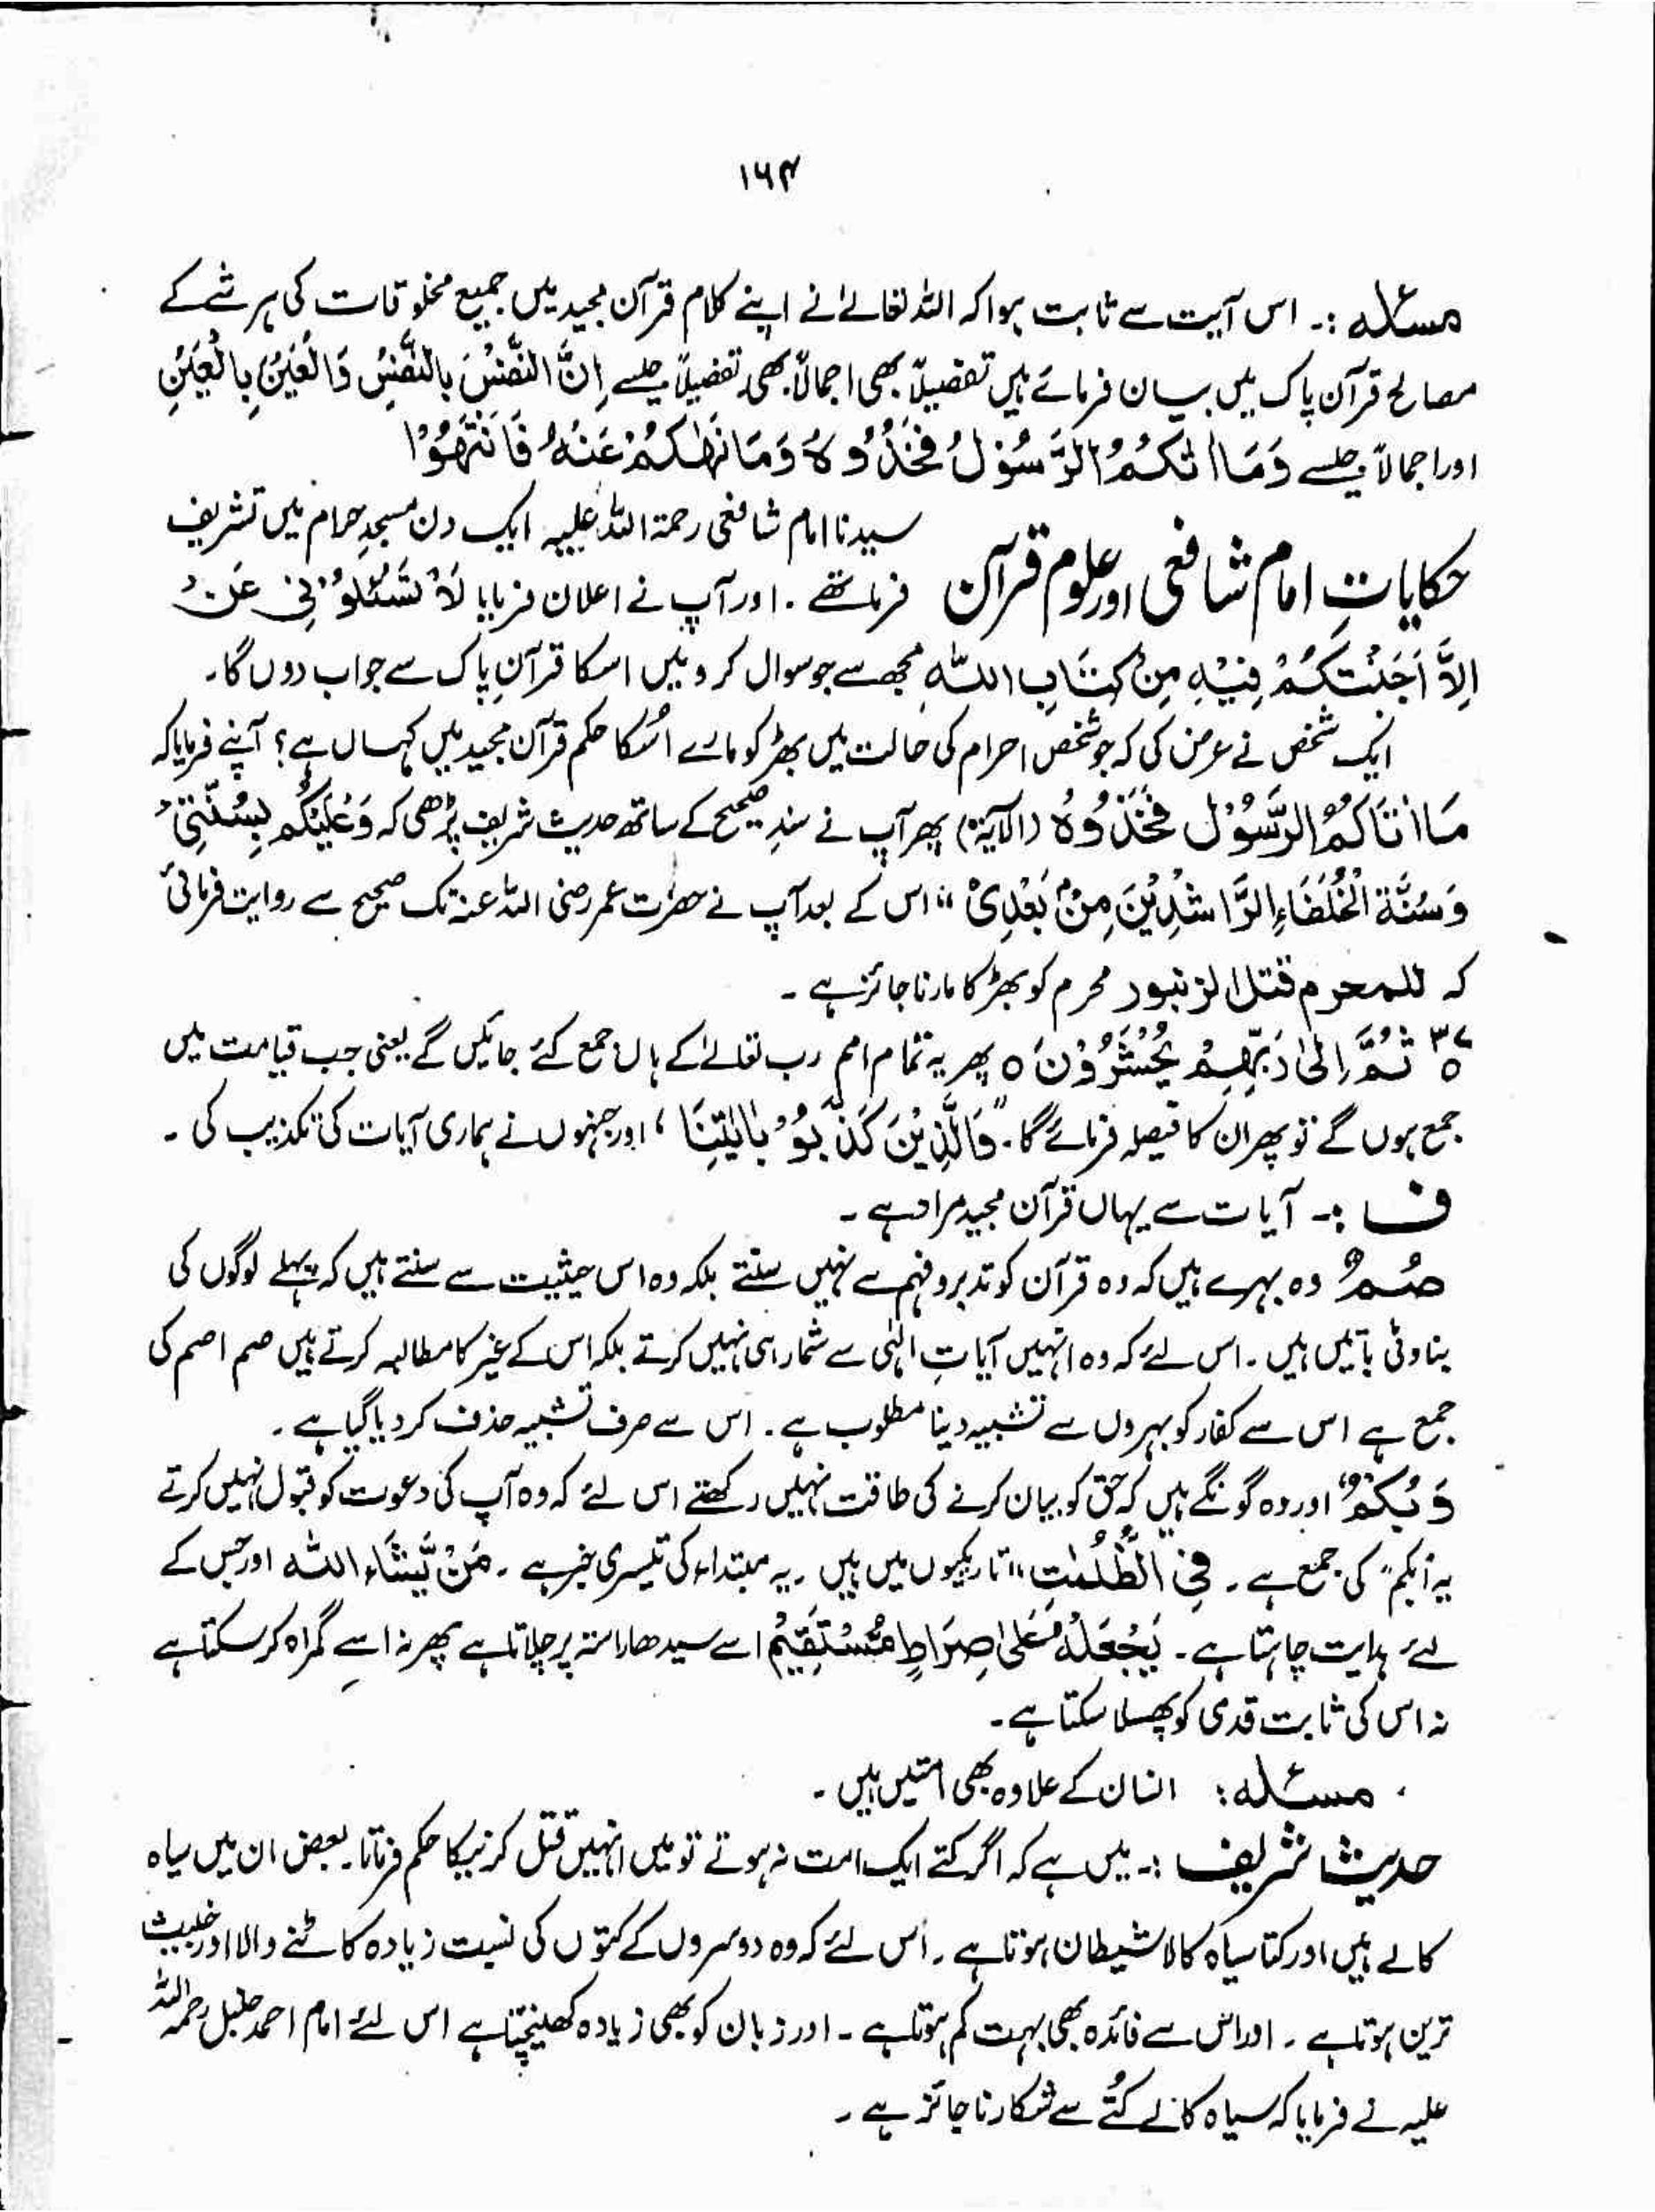 ۱۶۴
مسئلہ :۔ اس آیت سے ثابت ہوا کہ اللہ تعالےٰ نے اپنے کلام قرآن مجید میں جمیع مخلوقات کی ہر شے کے
مصالح قرآن پاک میں بیان فرمائے ہیں تفصیلاً بھی اجمالاً بھی۔ تفصیلاً جیسے اِنَّ النَّفْسَ بِالنَّفْسِ وَالْعَيْنَ بِالْعَيْنِ
اور اجمالاً جیسے وَمَا اٰتٰكُمُ الرَّسُوْلُ فَخُذُوْهُ وَمَا نَهٰكُمْ عَنْهُ فَانْتَهُوْا
حکایاتِ امام شافعی اور علوم قرآن
سیدنا امام شافعی رحمۃ اللہ علیہ ایک دن مسجدِ حرام میں تشریف
فرما تھے ۔ اور آپ نے اعلان فرمایا لَا تَسْئَلُوْنِيْ عَنْ
اِلَّا اَجَبْتُكُمْ فِيْهِ مِنْ كِتَابِ اللّٰهِ مجھ سے جو سوال کرو میں اسکا قرآنِ پاک سے جواب دوں گا۔
ایک شخص نے عرض کی کہ جو شخص احرام کی حالت میں بھڑ کو مارے اُسکا حکم قرآن مجید میں کہاں ہے؟ آپنے فرمایا کہ
مَا اٰتَاكُمُ الرَّسُوْلُ فَخُذُوْهُ (الآیۃ) پھر آپ نے سندِ صحیح کے ساتھ حدیث شریف پڑھی کہ وَعَلَيْكُمْ بِسُنَّتِيْ
وَسُنَّةِ الْخُلَفَاءِ الرَّاشِدِيْنَ مِنْ بَعْدِيْ “ اس کے بعد آپ نے حضرت عمر رضی اللہ عنہ تک صحیح سے روایت فرمائی
کہ للمحرم قتل الزنبور محرم کو بھڑ کا مارنا جائز ہے ۔
۳۷ ثُمَّ اِلىٰ رَبِّهِمْ يُحْشَرُوْنَ ہ پھر یہ تمام امم رب تعالےٰ کے ہاں جمع کئے جائیں گے یعنی جب قیامت میں
جمع ہوں گے تو پھر ان کا فیصلہ فرمائے گا ۔ “وَالَّذِيْنَ كَذَّبُوْا بِاٰيٰتِنَا ، اور جنہوں نے ہماری آیات کی تکذیب کی ۔
ف :۔ آیات سے یہاں قرآن مجید مراد ہے ۔
صُمٌّ وہ بہرے ہیں کہ وہ قرآن کو تدبر و فہم سے نہیں سنتے بلکہ وہ اس حیثیت سے سنتے ہیں کہ پہلے لوگوں کی
بناوٹی باتیں ہیں ۔ اس لئے کہ وہ انہیں آیاتِ الٰہی سے شمار ہی نہیں کرتے بلکہ اس کے غیر کا مطالبہ کرتے ہیں صم اصم کی
جمع ہے اس سے کفار کو بہروں سے تشبیہ دینا مطلوب ہے ۔ اس سے حرف تشبیہ حذف کر دیا گیا ہے ۔
وَبُكْمٌ اور وہ گونگے ہیں کہ حق کو بیان کرنے کی طاقت نہیں رکھتے اس لئے کہ وہ آپ کی دعوت کو قبول نہیں کرتے
یہ اَبکم“ کی جمع ہے ۔ فِي الظُّلُمٰتِ “ تاریکیوں میں ہیں ۔ یہ مبتداء کی تیسری خبر ہے ۔ مَنْ يَّشَاءِ اللّٰه اور جس کے
لئے ہدایت چاہتا ہے ۔ يَجْعَلْهُ عَلىٰ صِرَاطٍ مُّسْتَقِيْمٍ اسے سیدھا راستہ پر چلاتا ہے پھر نہ اسے گمراہ کر سکتا ہے
نہ اس کی ثابت قدمی کو پھسلا سکتا ہے ۔
مسئلہ : انسان کے علاوہ بھی امتیں ہیں ۔
حدیث شریف :۔ میں ہے کہ اگر کتے ایک امت نہ ہوتے تو میں انہیں قتل کرنیکا حکم فرماتا ۔ بعض ان میں سیاہ
کالے ہیں اور کتا سیاہ کالا شیطان ہوتا ہے ۔ اس لئے کہ وہ دوسروں کے کتوں کی نسبت زیادہ کاٹنے والا اور خبیث
ترین ہوتا ہے ۔ اور اس سے فائدہ بھی بہت کم ہوتا ہے ۔ اور زبان کو بھی زیادہ کھینچتا ہے اس لئے امام احمد حنبل رحمہ اللہ
علیہ نے فرمایا کہ سیاہ کالے کُتّے سے شکار ناجائز ہے ۔